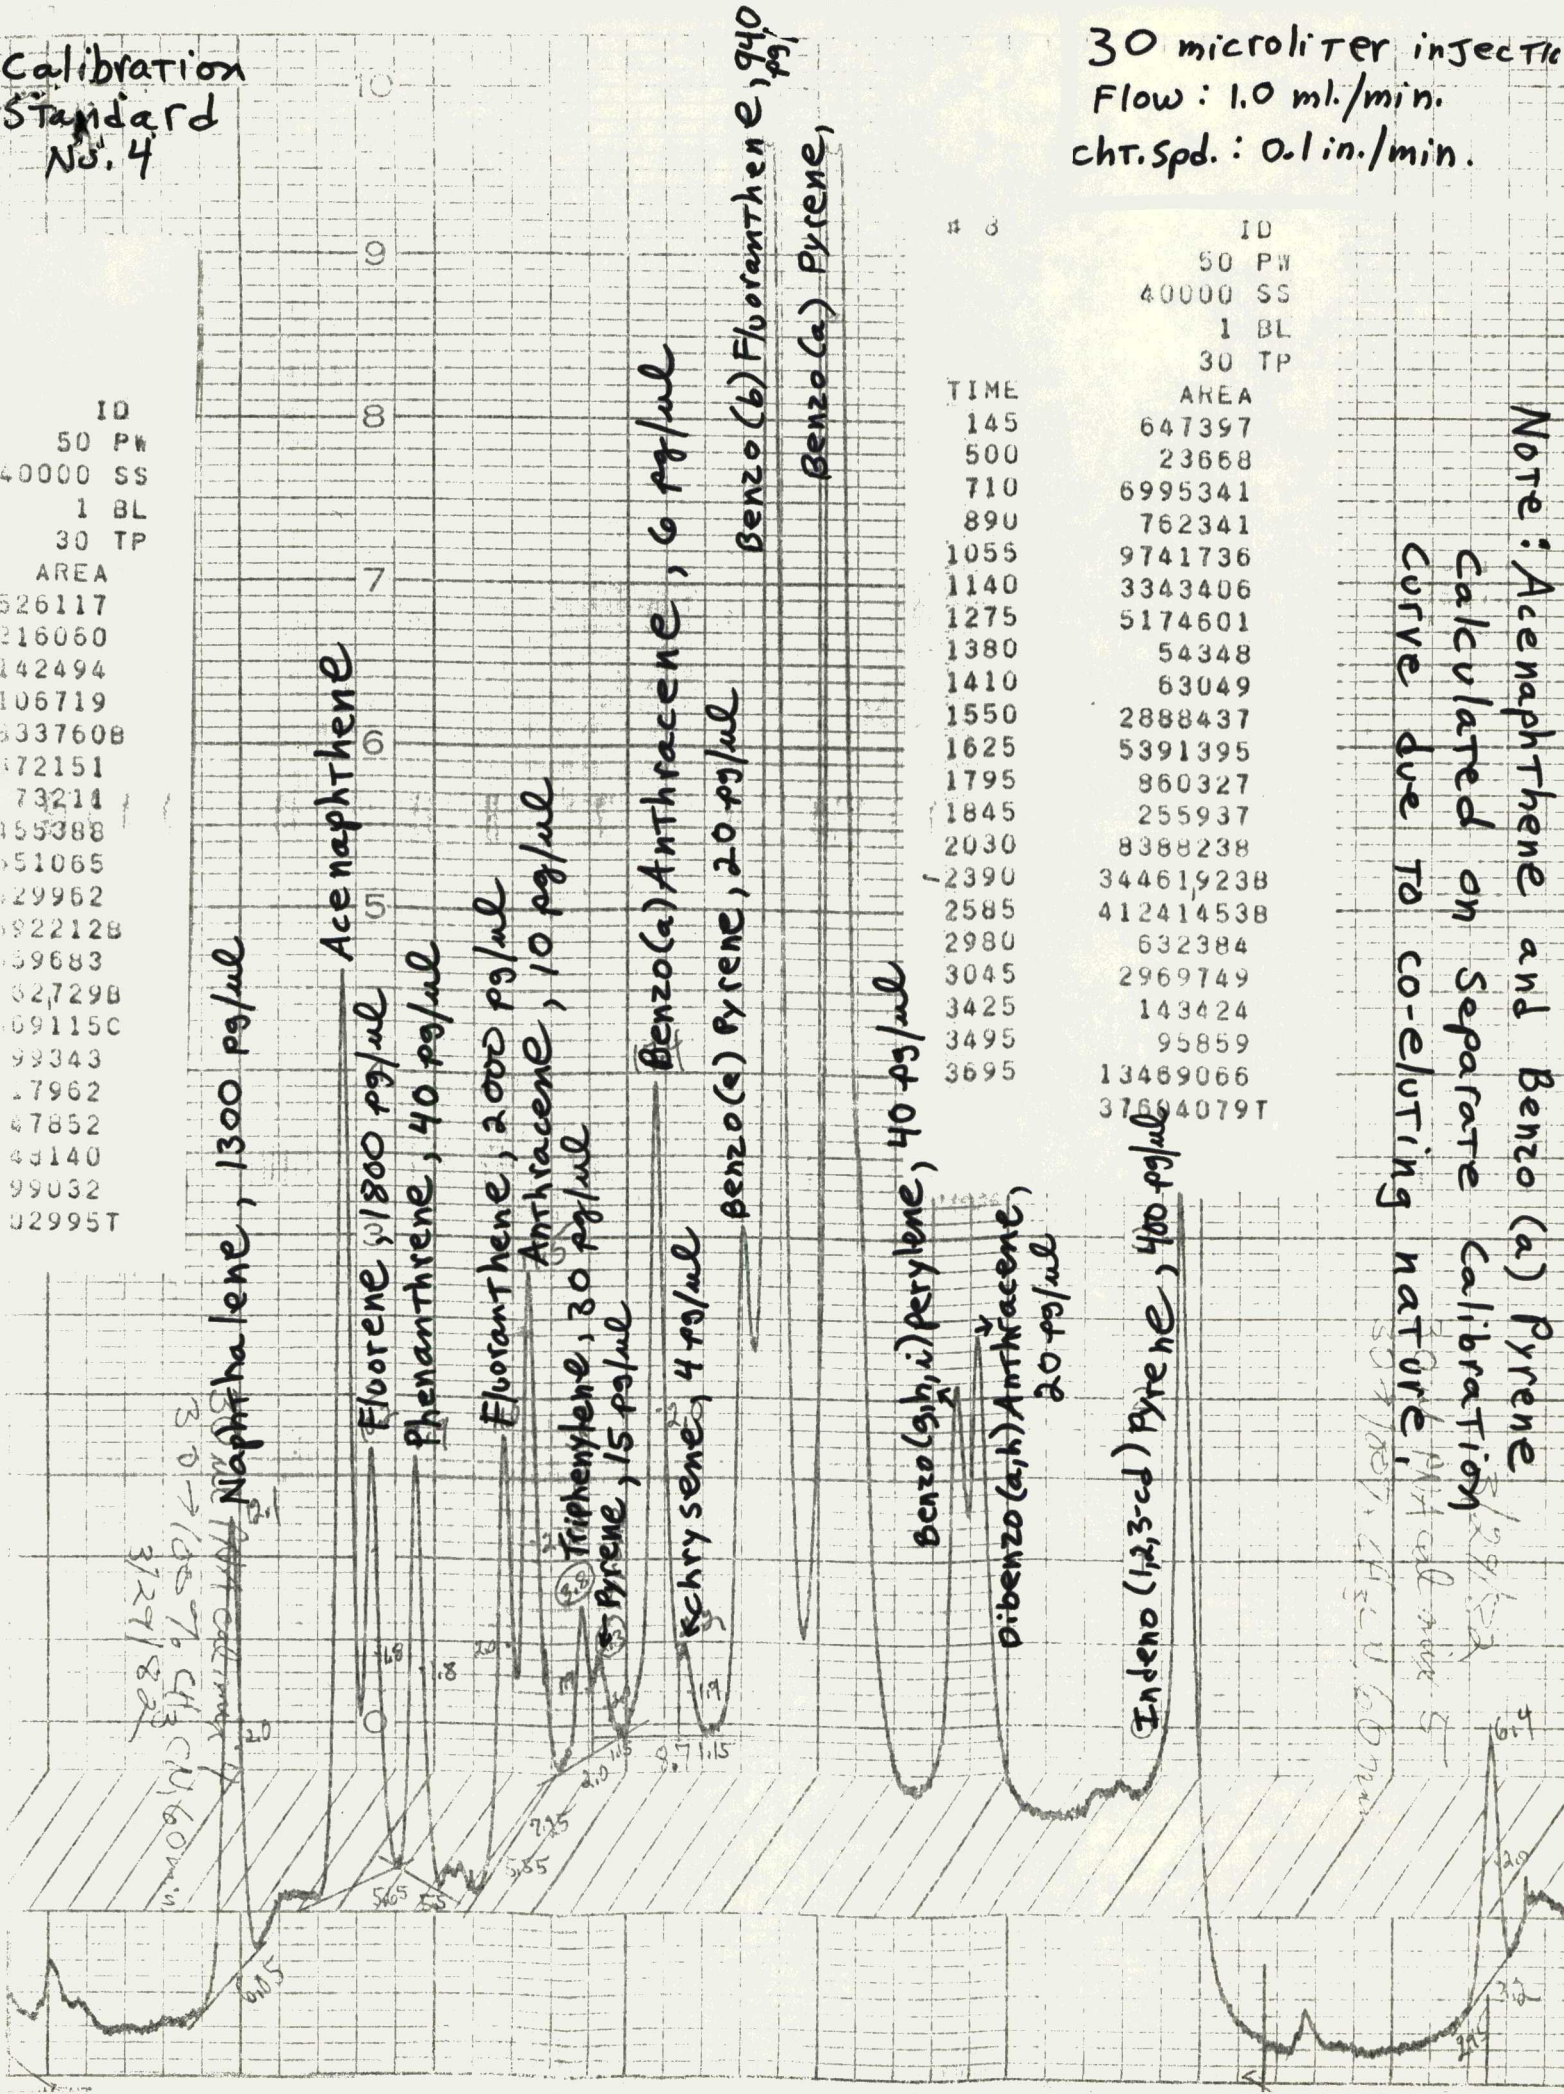 Calibration
Standard
No. 4
30 microliter injectio
Flow: 1.0 ml./min.
cht. Spd.: 0.1 in./min.
10
9
8
7
6
5
0
ID
50 PW
40000 SS
1 BL
30 TP
AREA
526117
216060
142494
106719
337608
72151
73211
455388
51065
29962
92212B
59683
62,729B
69115C
99343
7962
47852
48140
99032
02995T
Naphthalene, 1300 pg/ul
Acenaphthene
Fluorene, 1800 pg/ul
Phenanthrene, 40 pg/ul
Fluoranthene, 2000 pg/ul
Anthracene, 10 pg/ul
Triphenylene, 30 pg/ul
Pyrene, 15 pg/ul
Benzo(a)Anthracene, 6 pg/ul
Chrysene, 4 pg/ul
Benzo(e) Pyrene, 20 pg/ul
Benzo(b) Fluoranthene, 940 pg/
Benzo(a) Pyrene,
Benzo(g,h,i)perylene, 40 pg/ul
Dibenzo(a,h)Anthracene,
20 pg/ul
Indeno(1,2,3-cd) Pyrene, 400 pg/ul
ID
50 PW
40000 SS
1 BL
30 TP
TIME AREA
145 647397
500 23668
710 6995341
890 762341
1055 9741736
1140 3343406
1275 5174601
1380 54348
1410 63049
1550 2888437
1625 5391395
1795 860327
1845 255937
2030 8388238
2390 34461923B
2585 41241453B
2980 632384
3045 2969749
3425 143424
3495 95859
3695 13469066
37604079T
Note: Acenaphthene and Benzo (a) Pyrene
Calculated on Separate Calibration
Curve due to co-eluting nature.
30→100% CH3CN, 60 min
3/29/82
2.0
6.05
1.8
1.8
5.65
5.5
20
7.25
5.55
3.8
2.0
1.15
0.7
1.15
6.4
2.0
3.2